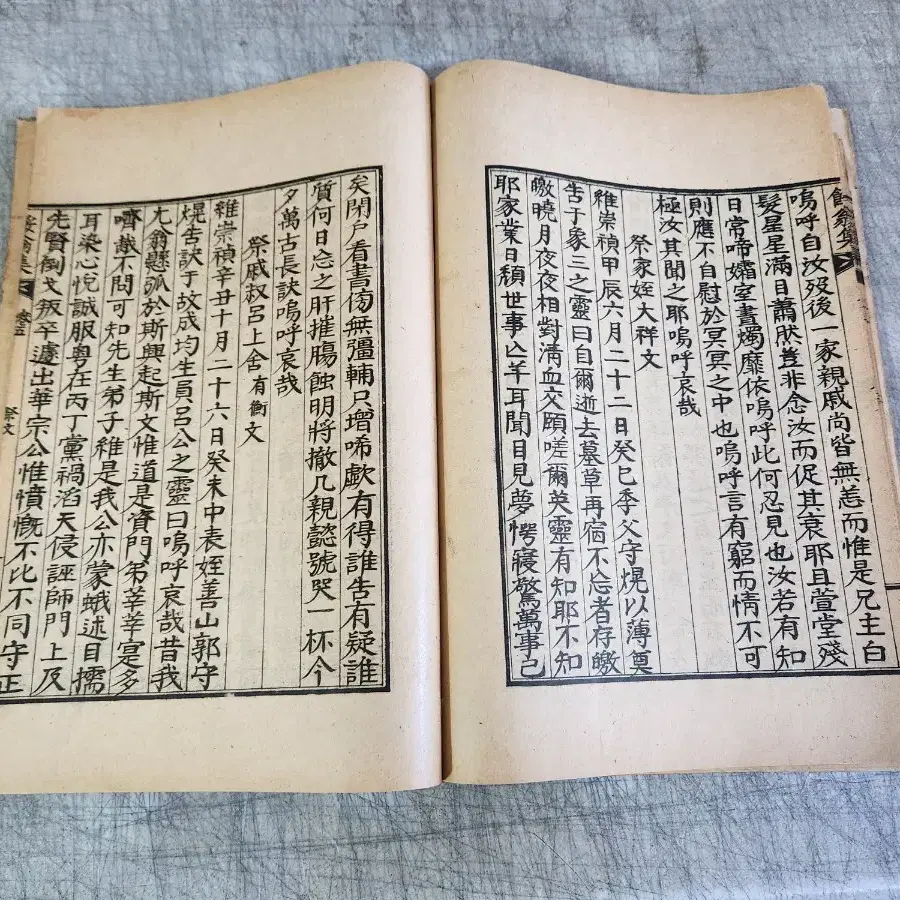 翁集
嗚呼自汝歿後一家親戚尚皆無恙而惟是兄主白
髮星星滿目蕭然豈非念汝而促其衰耶且萱堂殘
日常啼孀室晝燭靡依嗚呼此何忍見也汝若有知
則應不自慰於冥冥之中也嗚呼言有窮而情不可
極汝其聞之耶嗚呼哀哉
祭家姪大祥文
維崇禎甲辰六月二十二日癸巳季父守焜以薄奠
告于象三之靈曰自爾逝去墓草再宿不忘者存皦
皦曉月夜夜相對淸血交頤嗟爾英靈有知耶不知
耶家業日頹世事亡羊耳聞目見夢愕寢驚萬事已
矣閉戶看書傍無彊輔只增唏歔有得誰告有疑誰
質何日忘之肝摧膓蝕明將撤几親懿號哭一杯今
夕萬古長訣嗚呼哀哉
祭戚叔呂上舍有衡文
維崇禎辛丑十月二十六日癸未中表姪善山郭守
焜告訣于故成均生員呂公之靈曰嗚呼哀哉昔我
尤翁懸弧於斯興起斯文惟道是資門弟莘莘寔多
嚌胾不問可知先生弟子維是我公亦蒙蛾述目擩
耳染心悅誠服粤在丙丁黨禍滔天侵誣師門上及
先賢倒戈叛卒遽出華宗公惟憤慨不比不同守正
翁集
祭文